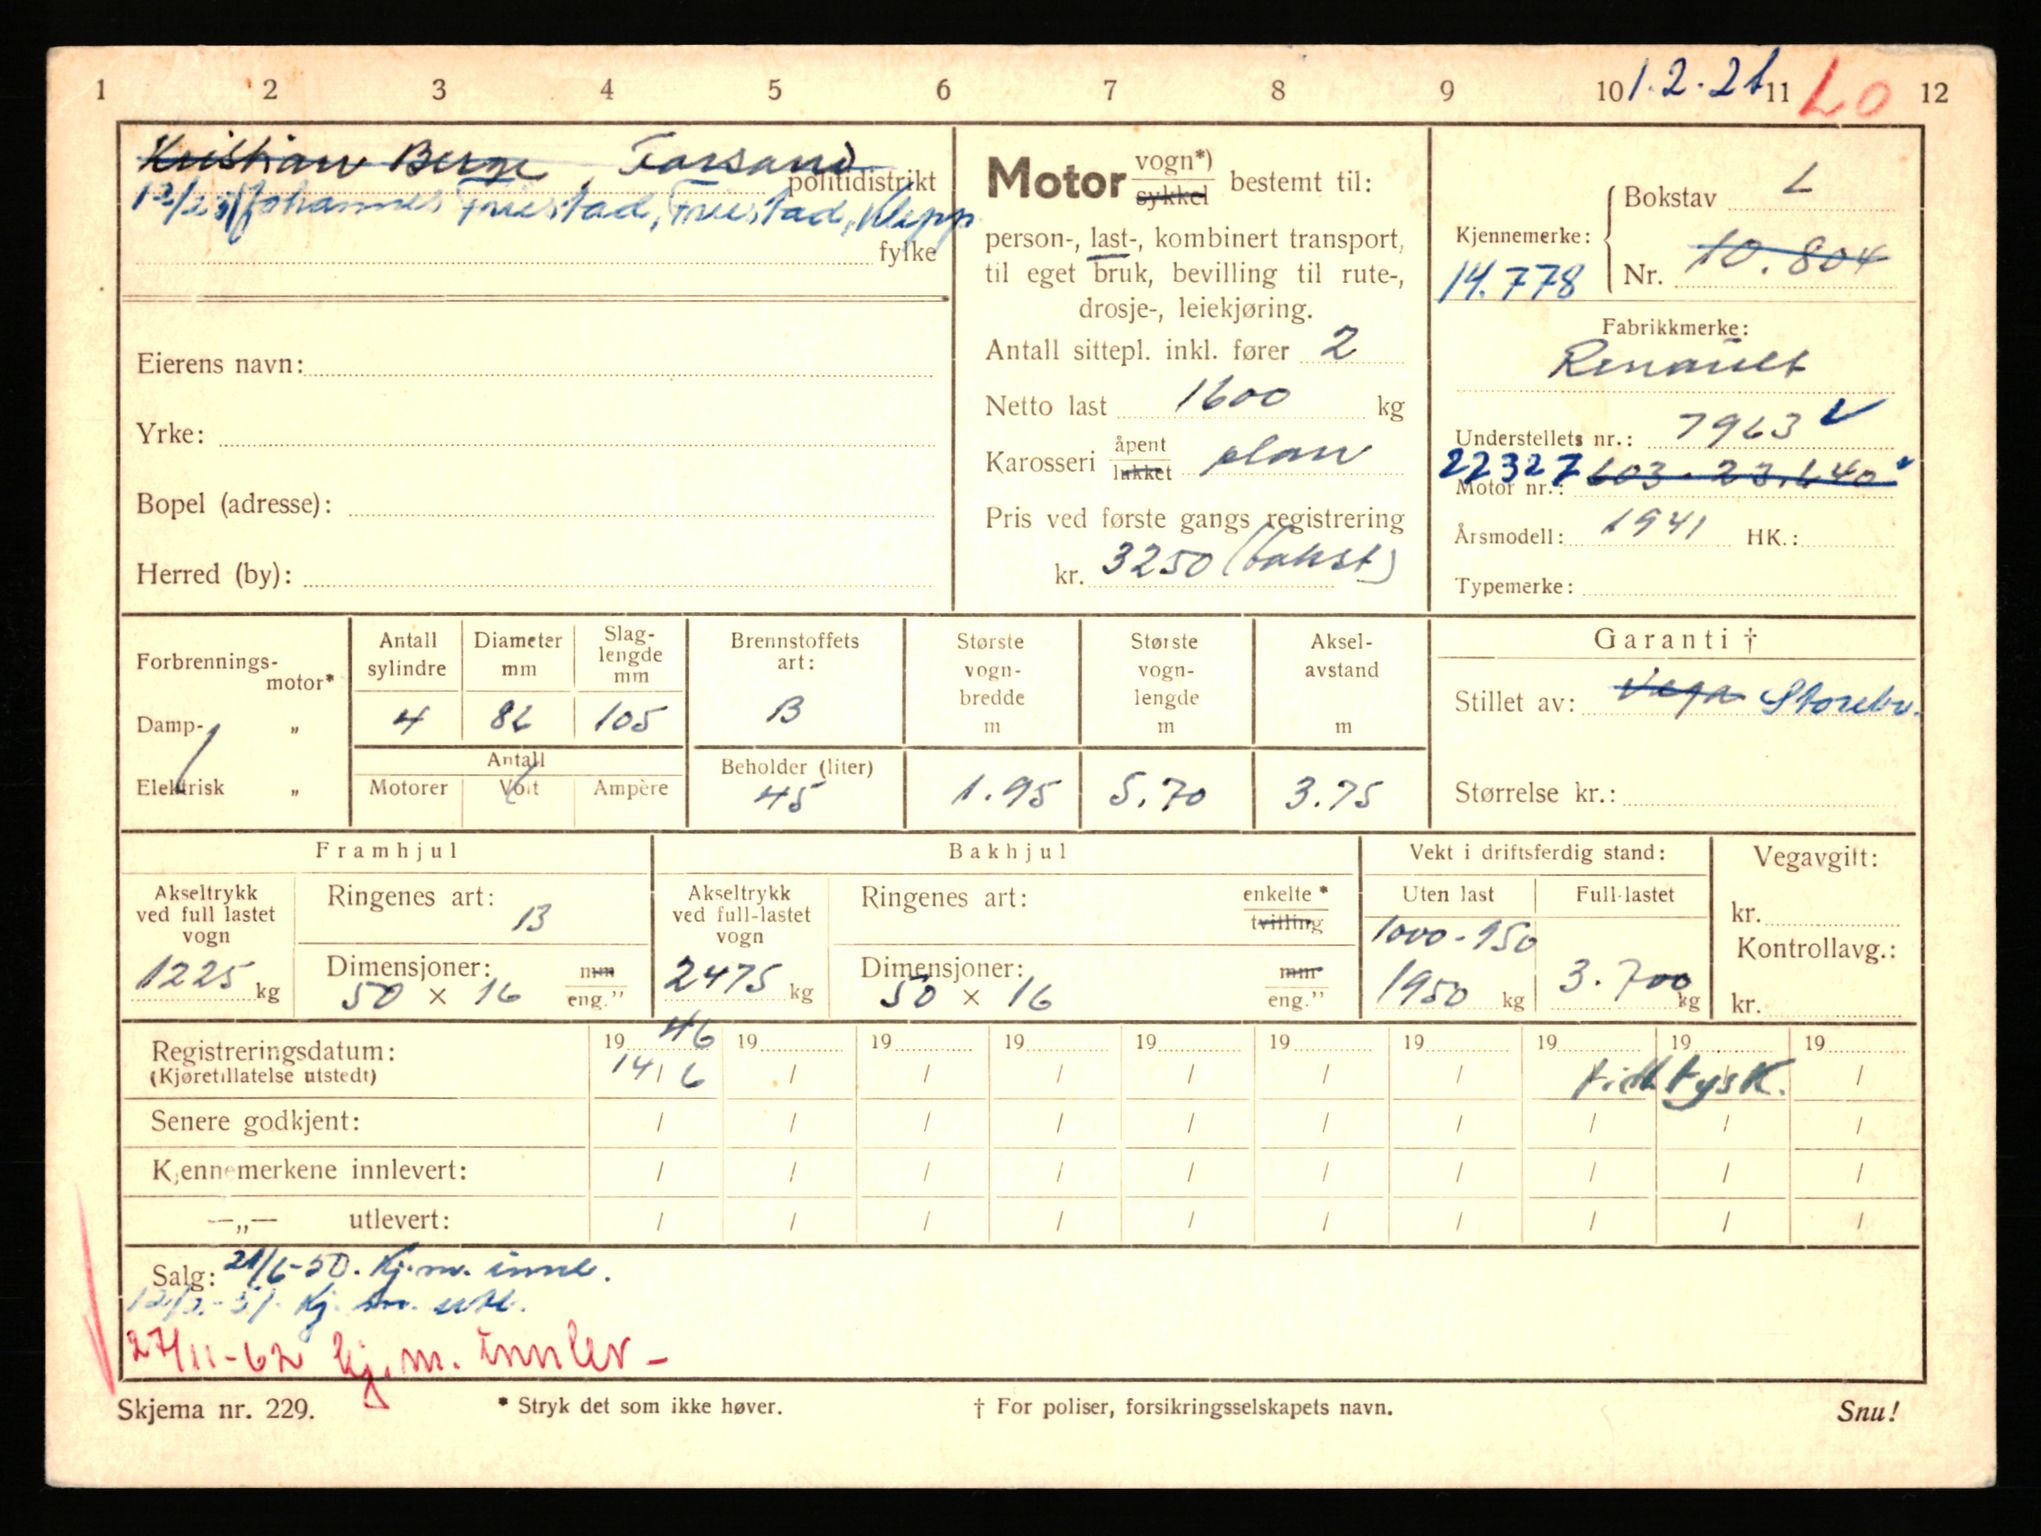 1 2 3 4 5 6 7 8 9 10 1.2.2b 11 LO 12
Kristian Berge, Forsand
politidistrikt
Johannes Friestad, Friestad, Klepp
fylke
Eierens navn:
Yrke:
Bopel (adresse):
Herred (by):
Motor vogn*) sykkel bestemt til:
person-, last-, kombinert transport,
til eget bruk, bevilling til rute-,
drosje-, leiekjøring.
Antall sittepl. inkl. fører 2
Netto last 1600 kg
Karosseri åpent lukket plan
Pris ved første gangs registrering
kr. 3250 (takst)
Bokstav L
Kjennemerke:
14.778 Nr. 10.804
Fabrikkmerke:
Renault
Understellets nr.: 7963
22327 603-23.640
Motor nr.:
Årsmodell: 1941 HK.:
Typemerke:
Forbrennings-motor*
Damp- „
Elektrisk „
Antall sylindre 4
Diameter mm 86
Slag-lengde mm 105
Antall
Motorer Volt Ampère
Brennstoffets art: B
Beholder (liter) 45
Største vogn-bredde m 1.95
Største vogn-lengde m 5.70
Aksel-avstand m 3.75
Garanti †
Stillet av: Vega Storebr.
Størrelse kr.:
Framhjul
Akseltrykk ved full lastet vogn 1225 kg
Ringenes art: B
Dimensjoner: 50 × 16 mm eng.”
Bakhjul
Akseltrykk ved full-lastet vogn 2475 kg
Ringenes art: enkelte * tvilling
Dimensjoner: 50 × 16 mm eng.”
Vekt i driftsferdig stand:
Uten last 1000-950 1950 kg
Full-lastet 3.700 kg
Vegavgift:
kr.
Kontrollavg.:
kr.
Registreringsdatum: 19 46 19 19 19 19 19 19 19 19 19
(Kjøretillatelse utstedt) 14/6 / / / / / / tidl. tysk. /
Senere godkjent: / / / / / / / / / /
Kjennemerkene innlevert: / / / / / / / / / /
—„— utlevert: / / / / / / / / / /
Salg: 21/6-50. Kj.m. innl.
Kj. m. utl.
27/11-62 kj.m. innlev -
Skjema nr. 229. * Stryk det som ikke høver. † For poliser, forsikringsselskapets navn. Snu!